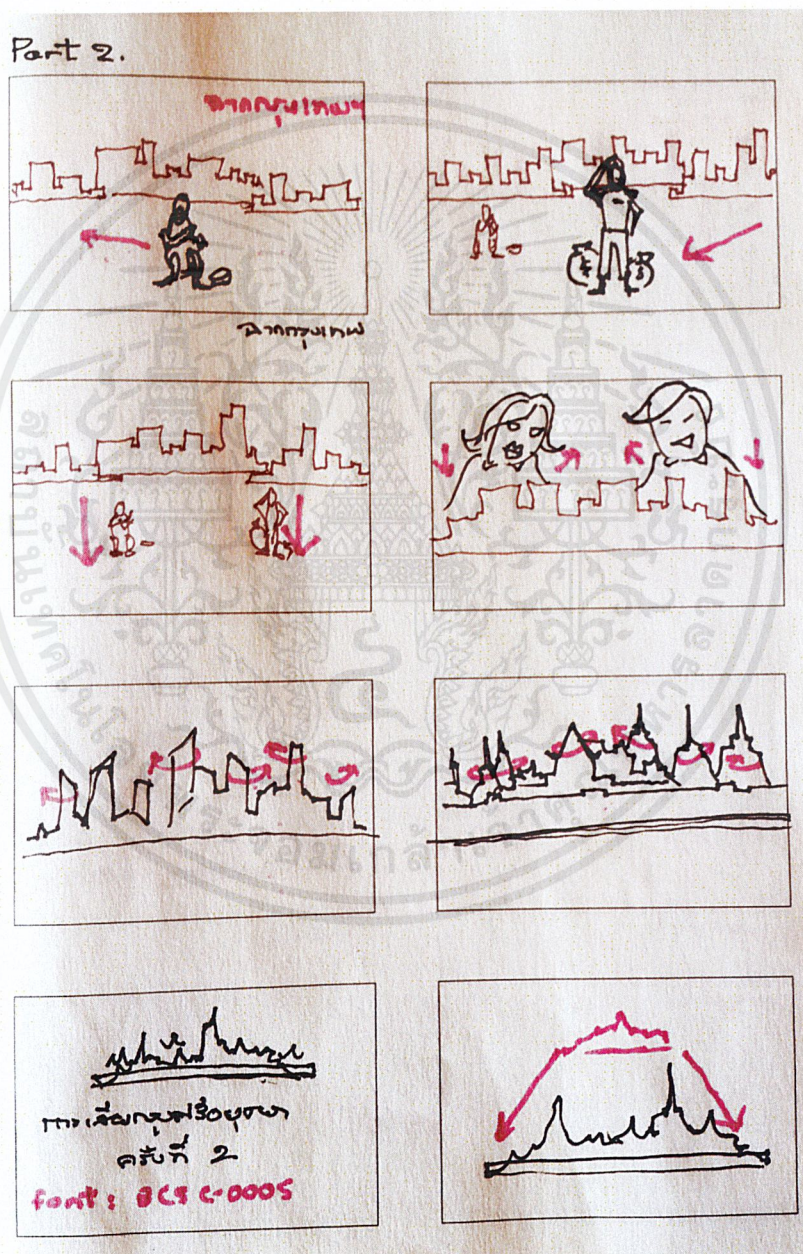 Part 2.
ฉากกรุงเทพฯ
ฉากกรุงเทพ
การเสียกรุงศรีอยุธยา
ครั้งที่ 2
font :